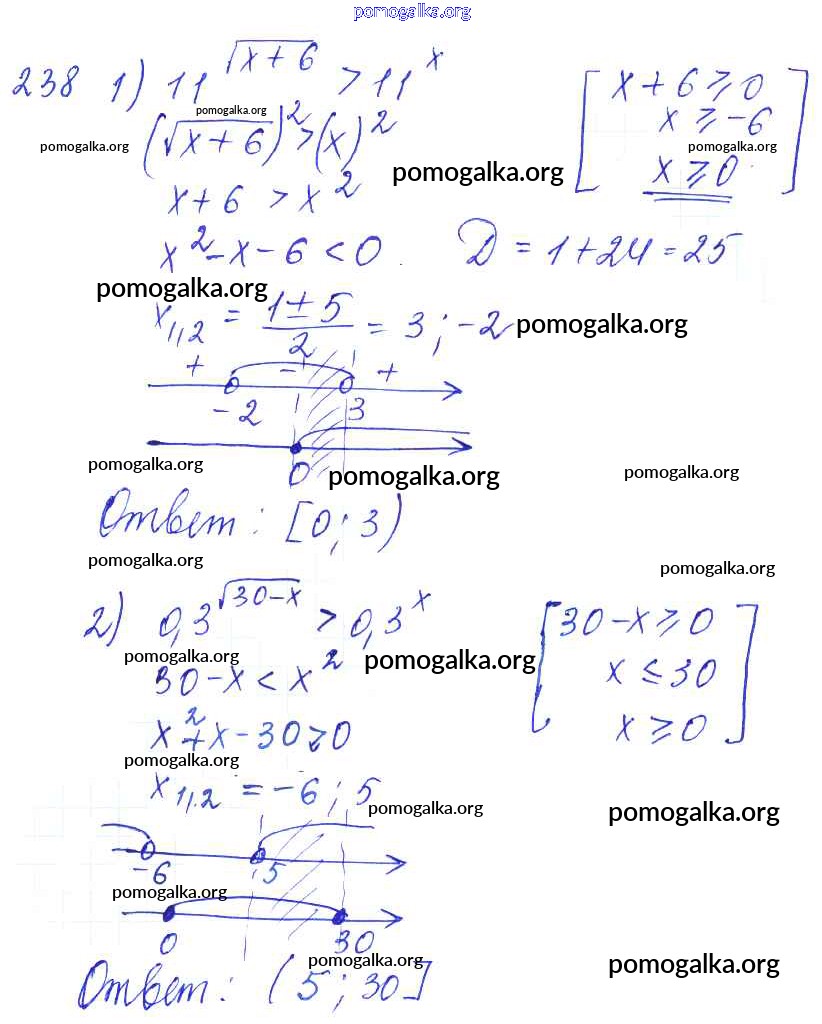 pomogalka.org
238 1) 11^√(x+6) > 11^x [ x+6 ⩾ 0
pomogalka.org
(√(x+6))^2 > (x)^2 x ⩾ -6
pomogalka.org pomogalka.org
x ⩾ 0 ]
pomogalka.org
x+6 > x^2
x^2-x-6 < 0. D = 1+24 = 25
pomogalka.org
x1,2 = (1±5)/2 = 3; -2 pomogalka.org
+ - +
-2 3
0
pomogalka.org pomogalka.org pomogalka.org
Ответ: [0; 3)
pomogalka.org pomogalka.org
2) 0,3^√(30-x) > 0,3^x [ 30-x ⩾ 0
pomogalka.org pomogalka.org
30-x < x^2 x ≤ 30
x^2+x-30 > 0 x ⩾ 0 ]
pomogalka.org
x1,2 = -6; 5
pomogalka.org pomogalka.org
-6 5
pomogalka.org
0 30
pomogalka.org pomogalka.org
Ответ: (5; 30]